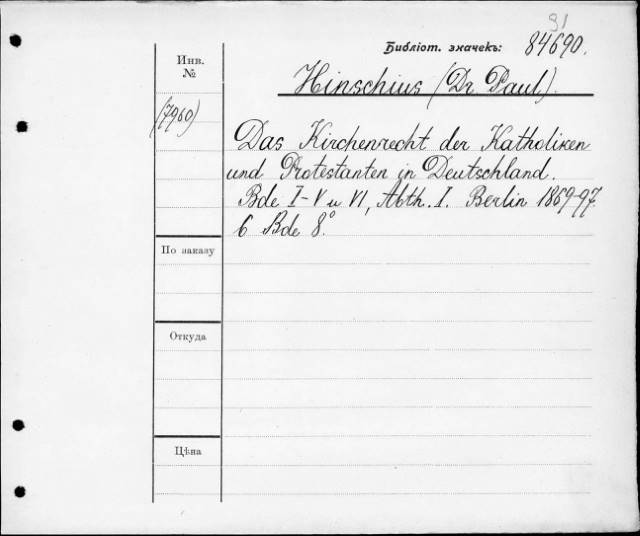 91
Библіот. значекъ: 84690.
Инв.
№
Hinschius (Dr. Paul).
(7960)
Das Kirchenrecht der Katholiken
und Protestanten in Deutschland.
Bde I-V u VI, Abth. I. Berlin 1869-97.
6 Bde 8°.
По заказу
Откуда
Цѣна